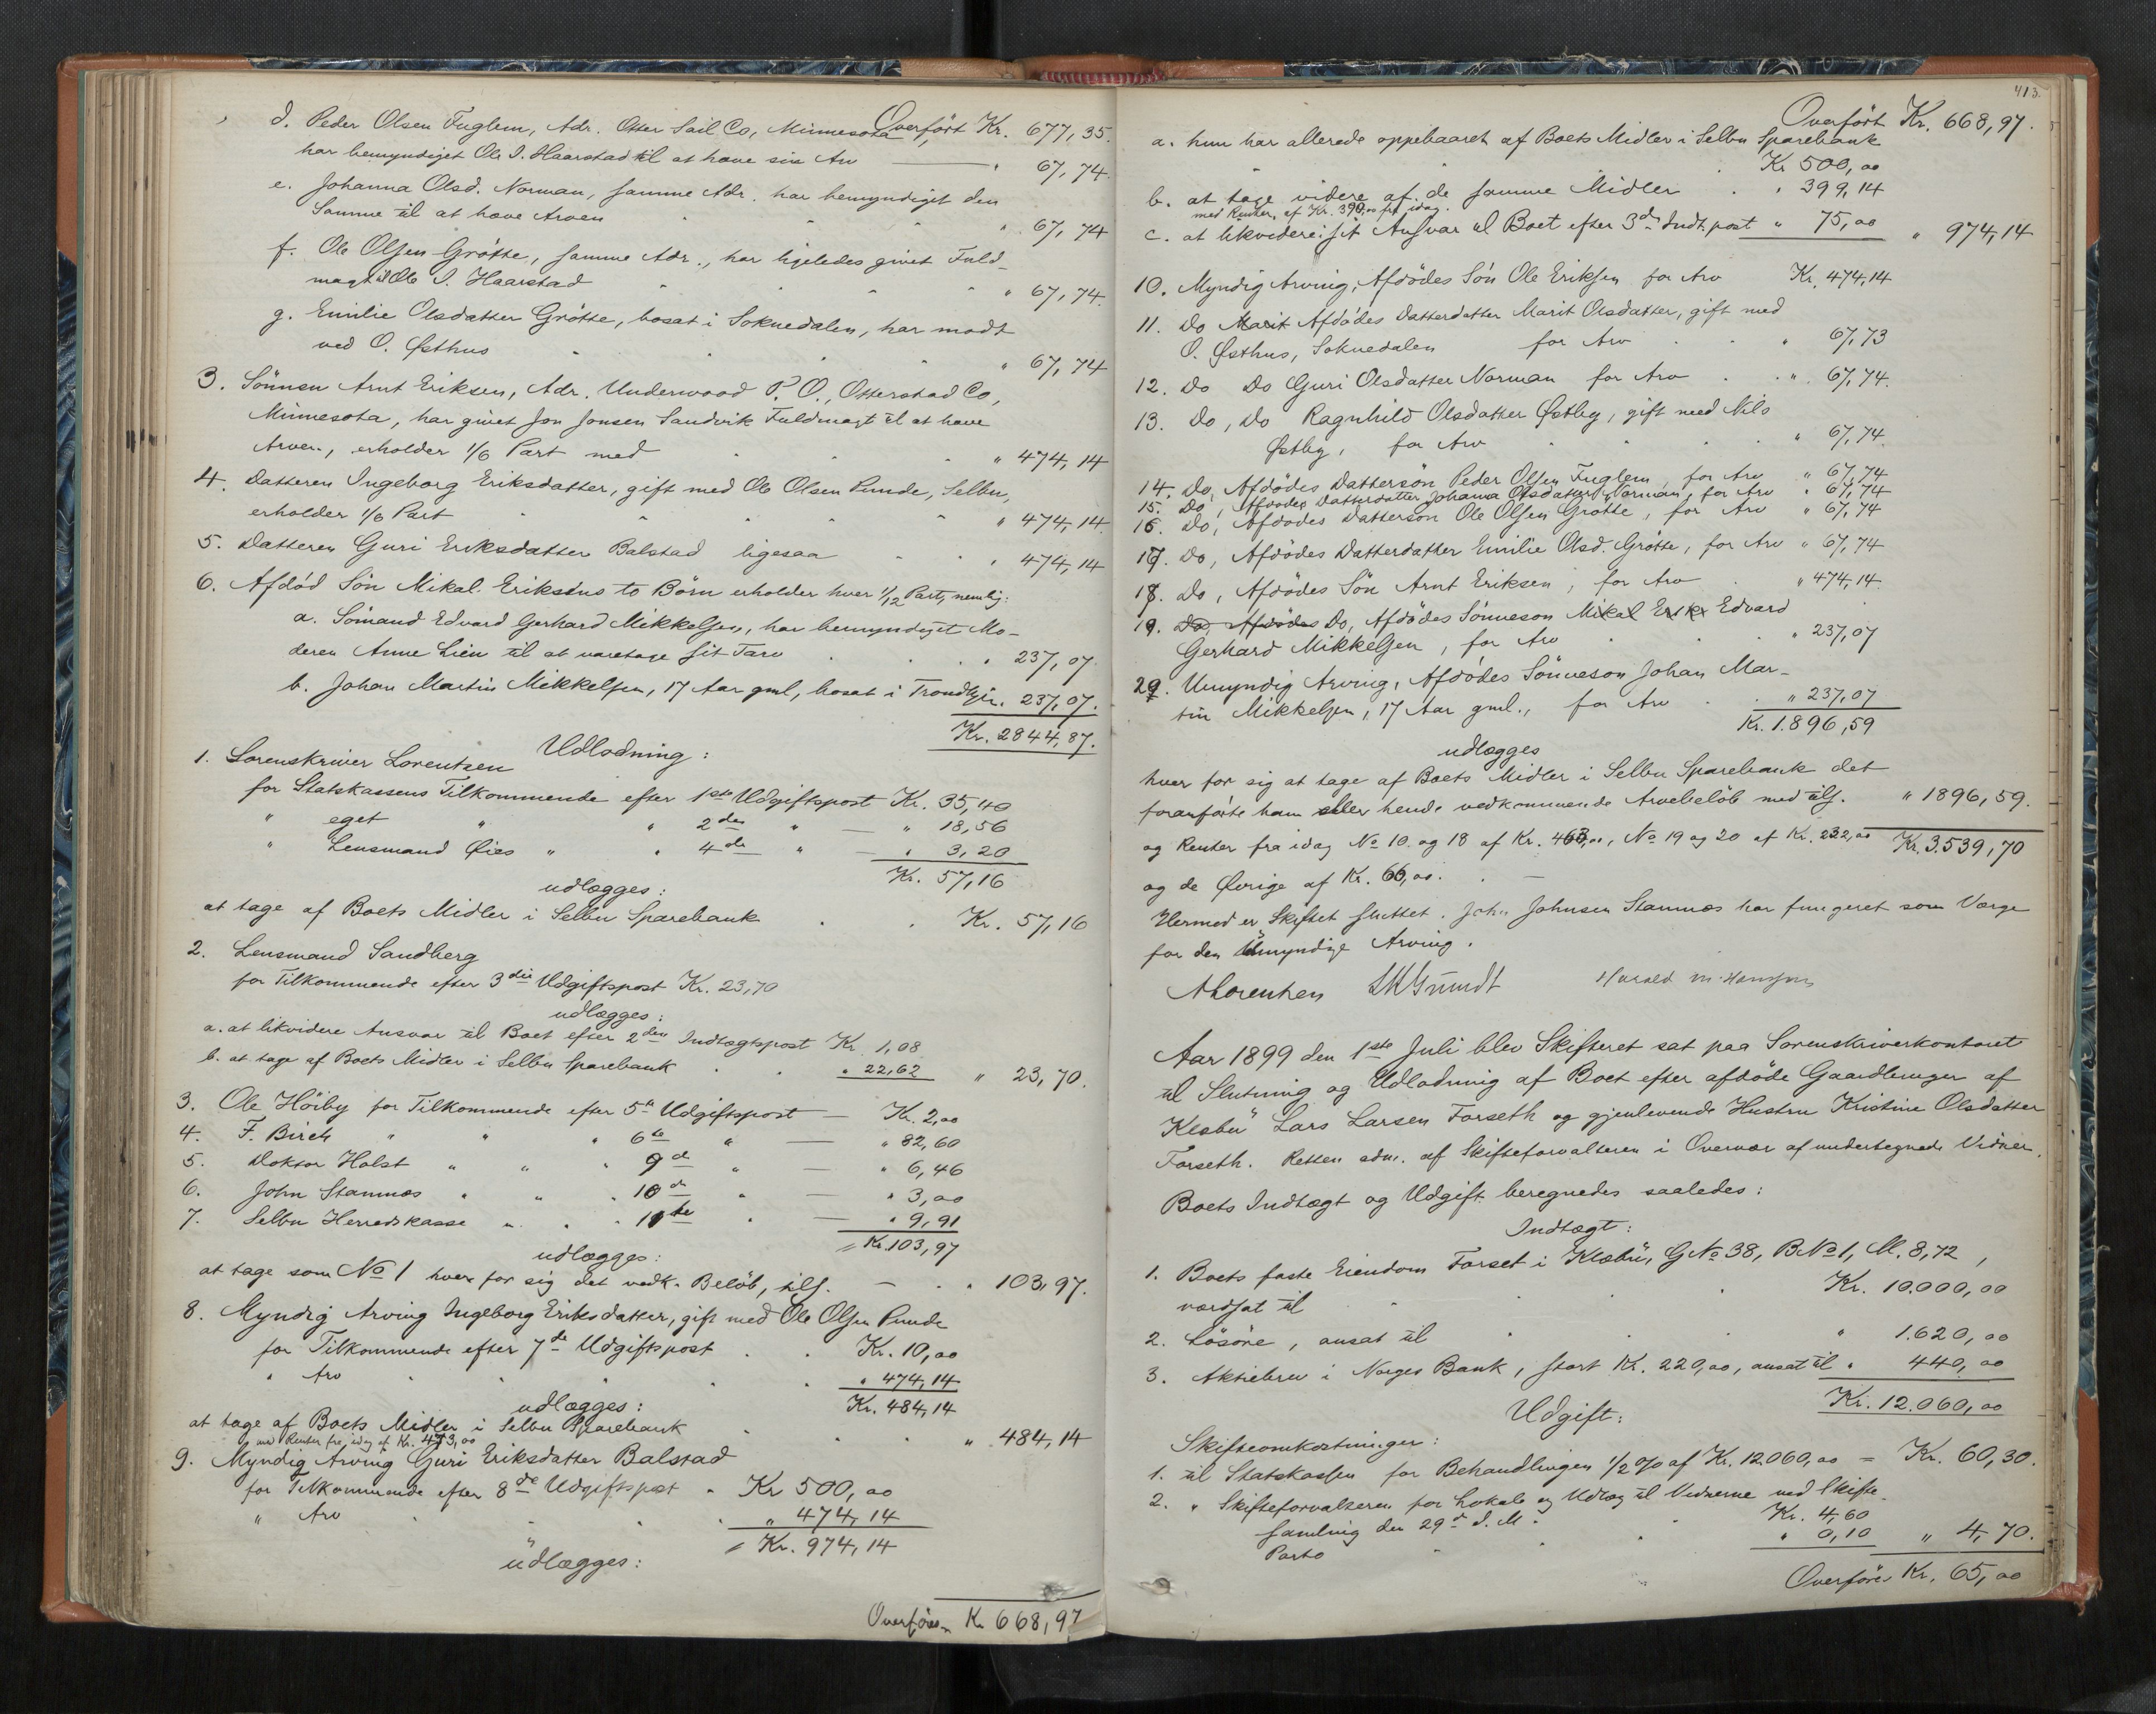 Overført Kr. 677,35.
d. Peder Olsen Fuglem, Adr. Otter Tail Co, Minnesota,
har bemyndiget Ole I. Haarstad til at hæve sin Arv — " 67,74.
e. Johanna Olsd. Norman, samme Adr. har bemyndiget den
Samme til at hæve Arven " 67,74
f. Ole Olsen Grøtte, samme Adr., har ligeledes givet Fuld-
magt til Ole I. Haarstad " 67,74.
g. Emilie Olsdatter Grøtte, bosat i Soknedalen, har mødt
ved O. Østhus " 67,74
3. Sønnen Arnt Eriksen, Adr. Underwood P.O., Otterstad Co,
Minnesota, har givet Jon Jonsen Sandvik Fuldmagt til at hæve
Arven, erholder 1/6 Part med " 474,14
4. Datteren Ingeborg Eriksdatter, gift med Ole Olsen Punde, Selbu,
erholder 1/6 Part " 474,14.
5. Datteren Guri Eriksdatter Balstad ligesaa " 474,14
6. Afdød Søn Mikal Eriksens to Børn erholder hver 1/12 Part, nemlig:
a. Sømand Edvard Gerhard Mikkelsen, har bemyndiget Mo-
deren Anne Lien til at varetage sit Tarv " 237,07.
b. Johan Martin Mikkelsen, 17 Aar gml, bosat i Trondhj. " 237,07.
Kr. 2844,87.
Udlodning:
1. Sorenskriver Lorentzen
for Statskassens Tilkommende efter 1ste Udgiftspost Kr. 35,40
" eget " " 2den " — " 18,56
" Lensmand Øies " " 4de " — " 3,20
Kr. 57,16
udlægges:
at tage af Boets Midler i Selbu Sparebank . . Kr. 57,16
2. Lensmand Sandberg
for Tilkommende efter 3die Udgiftspost Kr. 23,70
udlægges:
a. at likvidere Ansvar til Boet efter 2den Indtægtspost Kr. 1,08
b. at tage af Boets Midler i Selbu Sparebank . " 22,62 " 23,70.
3. Ole Hörby for Tilkommende efter 5te Udgiftspost — Kr. 2,00
4. F. Birch " " " 6te " — " 82,60
5. Doktor Holst " " " 9de " — " 6,46
6. John Stamnæs " " " 10de " — " 3,00
7. Selbu Herredskasse " " " 11te " — " 9,91
= Kr. 103,97
udlægges:
at tage som No 1 hver for sig det vedk. Beløb, tils. — " 103,97.
8. Myndig Arving Ingeborg Eriksdatter, gift med Ole Olsen Punde
for Tilkommende efter 7de Udgiftspost . . Kr. 10,00
" Arv . . . " 474,14
Kr. 484,14
udlægges:
at tage af Boets Midler i Selbu Sparebank . . " 484,14
med Renter fra idag af Kr. 473,00
9. Myndig Arving Guri Eriksdatter Balstad
for Tilkommende efter 8de Udgiftspost " Kr 500,00
" Arv . . . " 474,14
= Kr. 974,14
udlægges:
Overføres Kr 668,97
413.
Overført Kr. 668,97.
a. hun har allerede oppebaaret af Boets Midler i Selbu Sparebank
Kr 500,00
b. at tage videre af de samme Midler . " 399,14
med Renter af Kr. 390,00 fra idag.
c. at likvidere sit Ansvar til Boet efter 3die Indt. post " 75,00 " 974,14
10. Myndig Arving, Afdødes Søn Ole Eriksen for Arv Kr. 474,14
11. Do Marit Afdødes Datterdatter Marit Olsdatter, gift med
O. Østhus, Soknedalen for Arv . . " 67,73
12. Do Do Guri Olsdatter Norman for Arv . . " 67,74.
13. Do, Do Ragnhild Olsdatter Østby, gift med Nils
Østby, for Arv . . " 67,74.
14. Do, Afdødes Dattersøn Peder Olsen Fuglem, for Arv " 67,74
15. Do, Afdødes Datterdatter Johanna Olsdatter Norman, for Arv " 67,74
16. Do, Afdødes Dattersøn Ole Olsen Grøtte, for Arv " 67,74
17. Do, Afdødes Datterdatter Emilie Olsd. Grøtte, for Arv " 67,74
18. Do, Afdødes Søn Arnt Eriksen, for Arv . " 474,14.
19. Do, Afdødes Do, Afdødes Sønnesøn Mikal Erik Edvard
Gerhard Mikkelsen, for Arv . . " 237,07
20. Umyndig Arving, Afdødes Sønnesøn Johan Mar-
tin Mikkelsen, 17 Aar gml., for Arv . . " 237,07
Kr. 1.896,59
udlægges
hver for sig at tage af Boets Midler i Selbu Sparebank det
foranførte ham eller hende vedkommende Arvebeløb med tils. " 1896,59.
og Renter fra idag No 10 og 18 af Kr. 463,00, No 19 og 20 af Kr. 232,00 Kr. 3.539,70
og de Øvrige af Kr. 66,00. . —
Hermed er Skiftet sluttet. John Johnsen Stamnæs har fungeret som Værge
for den Umyndige Arving.
ALorentzen Harald M. Hansen
Aar 1899 den 1ste Juli blev Skifteret sat paa Sorenskriverkontoret
til Slutning og Udlodning af Boet efter afdøde Gaardbruger af
Klæbu Lars Larsen Forseth og gjenlevende Hustru Kristine Olsdatter
Forseth. Retten adm. af Skifteforvalteren i Overvær af undertegnede Vidner.
Boets Indtægt og Udgift beregnedes saaledes:
Indtægt:
1. Boets faste Eiendom Forset i Klæbu, GNo 38, BNo 1, M. 8,72,
værdsat til . . Kr. 10.000,00
2. Løsøre, ansat til . . . " 1.620,00
3. Aktiebrev i Norges Bank, stort Kr. 220,00, ansat til " 440,00
Kr. 12.060,00
Udgift:
Skifteomkostninger:
1. til Statskassen for Behandlingen 1/2 % af Kr. 12.060,00 = Kr. 60,30.
2. " Skifteforvalteren for Lokale og Udlæg til Vidnerne ved Skifte-
samling den 29de d. M. . . Kr. 4,60
Porto . . . " 0,10 " 4,70.
Overføres Kr. 65,00